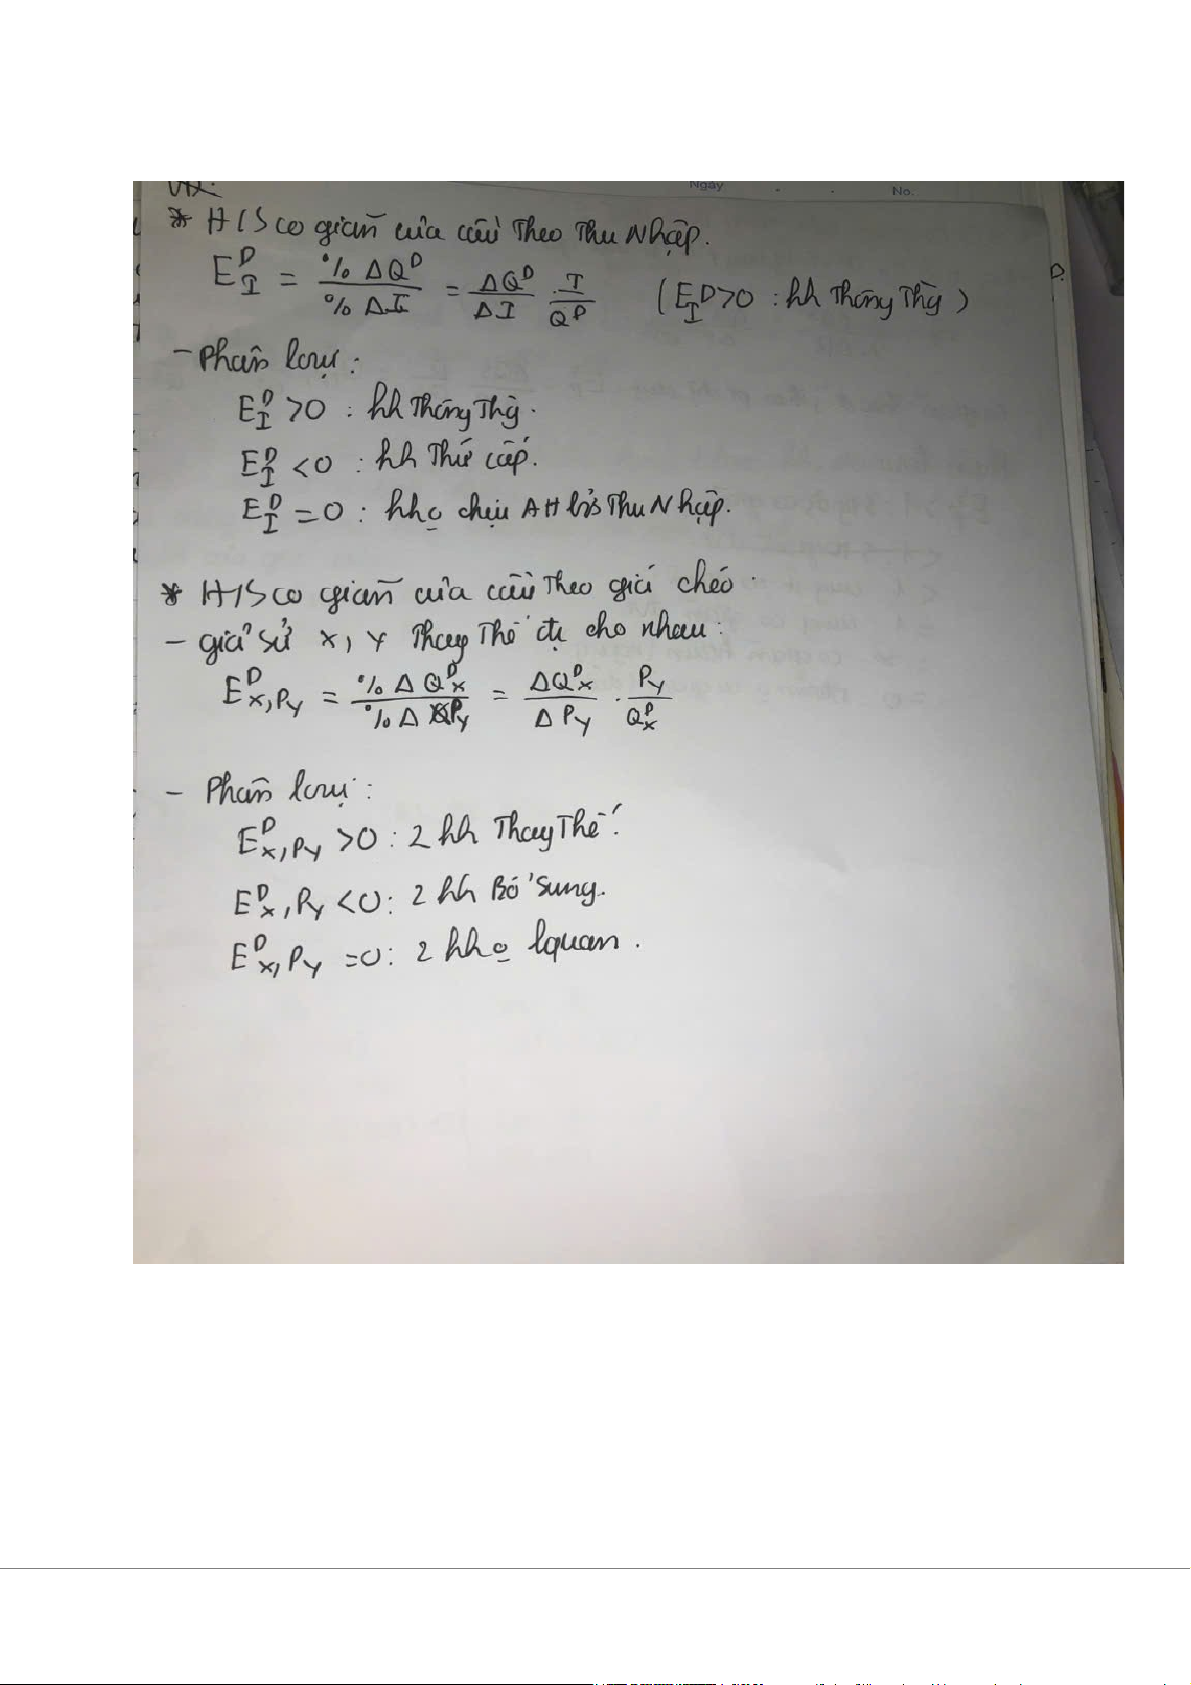 VD:
Ngày . . No.
* H/S co giãn của cầu theo thu nhập.
E^D_I = %ΔQ^D / %ΔI = ΔQ^D / ΔI . I / Q^D (E^D_I > 0 : hh thông thg)
- Phân loại :
E^D_I > 0 : hh thông thg.
E^D_I < 0 : hh thứ cấp.
E^D_I = 0 : hh o chịu AH bởi thu nhập.
* H/S co giãn của cầu theo giá chéo.
- giả sử X, Y thay thế đc cho nhau :
E^D_X,PY = %ΔQ^D_X / %ΔPY = ΔQ^D_X / ΔPY . PY / Q^D_X
- Phân loại :
E^D_X,PY > 0 : 2 hh thay thế.
E^D_X,PY < 0 : 2 hh Bổ sung.
E^D_X,PY = 0 : 2 hh o lquan.